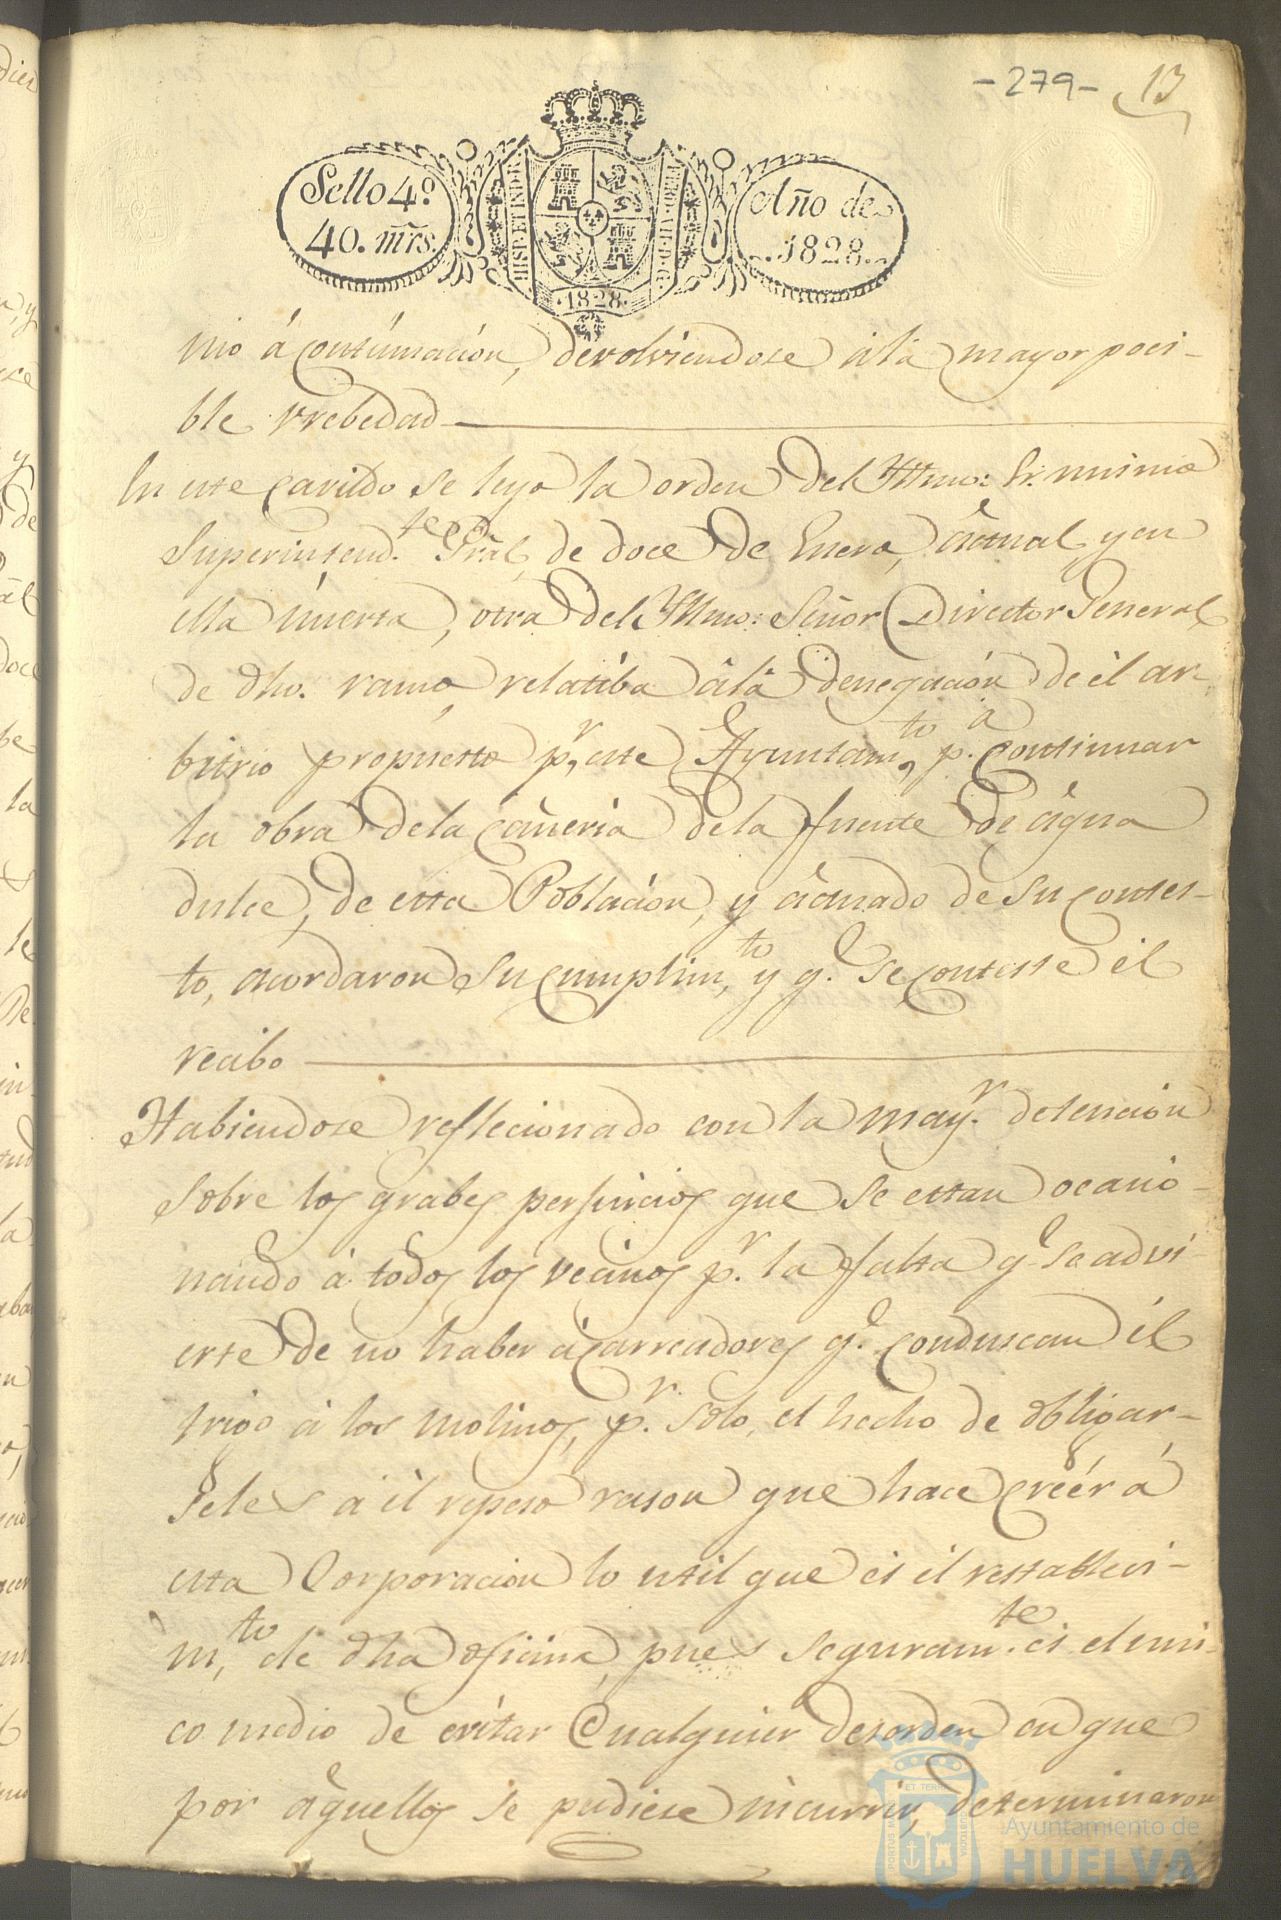 -279- 13
Sello 4º
40. mrs.
HISP. ET IND. R.
FERD. VII. D. G.
1828.
Año de
1828.
nio á continuación, devolviendose a la mayor posi-
ble vrebedad
En este cavildo se leyo la orden del Yltmo: Sr.
Superintend.te Gral, de doce de Enero, actual, y en
ella incerta, otra del Yltmo: Señor Director General,
de dho. ramo, relatiba à la denegación de èl ar-
bitrio propuesto p.r este Ayuntam.to p.a continuar
la obra de la cañeria de la fuente de agua
dulce, de esta Poblacion, y de su contes-
to, acordaron su cumplim.to y q.e se conteste él
recibo
Habiendose reflecionado con la may.r detencion
sobre los grabes perjuicios que se estan ocacio-
nando á todos los vecinos p.r la falta q.e se advi-
erte de no haber acarreadores q.e conduscan él
trigo á los molinos, p.r solo, el hecho de obligar-
seles a él repeso rason que hace creér á
esta Corporacion lo util que es él restableci-
m.to de dha oficina, pues seguram.te es el uni-
co medio de evitar cualquier desorden en que
por aquellos se pudiese incurrir, determinaron
PORTUS MARIS
ET TERRÆ
CUSTODIA
Ayuntamiento de
HUELVA